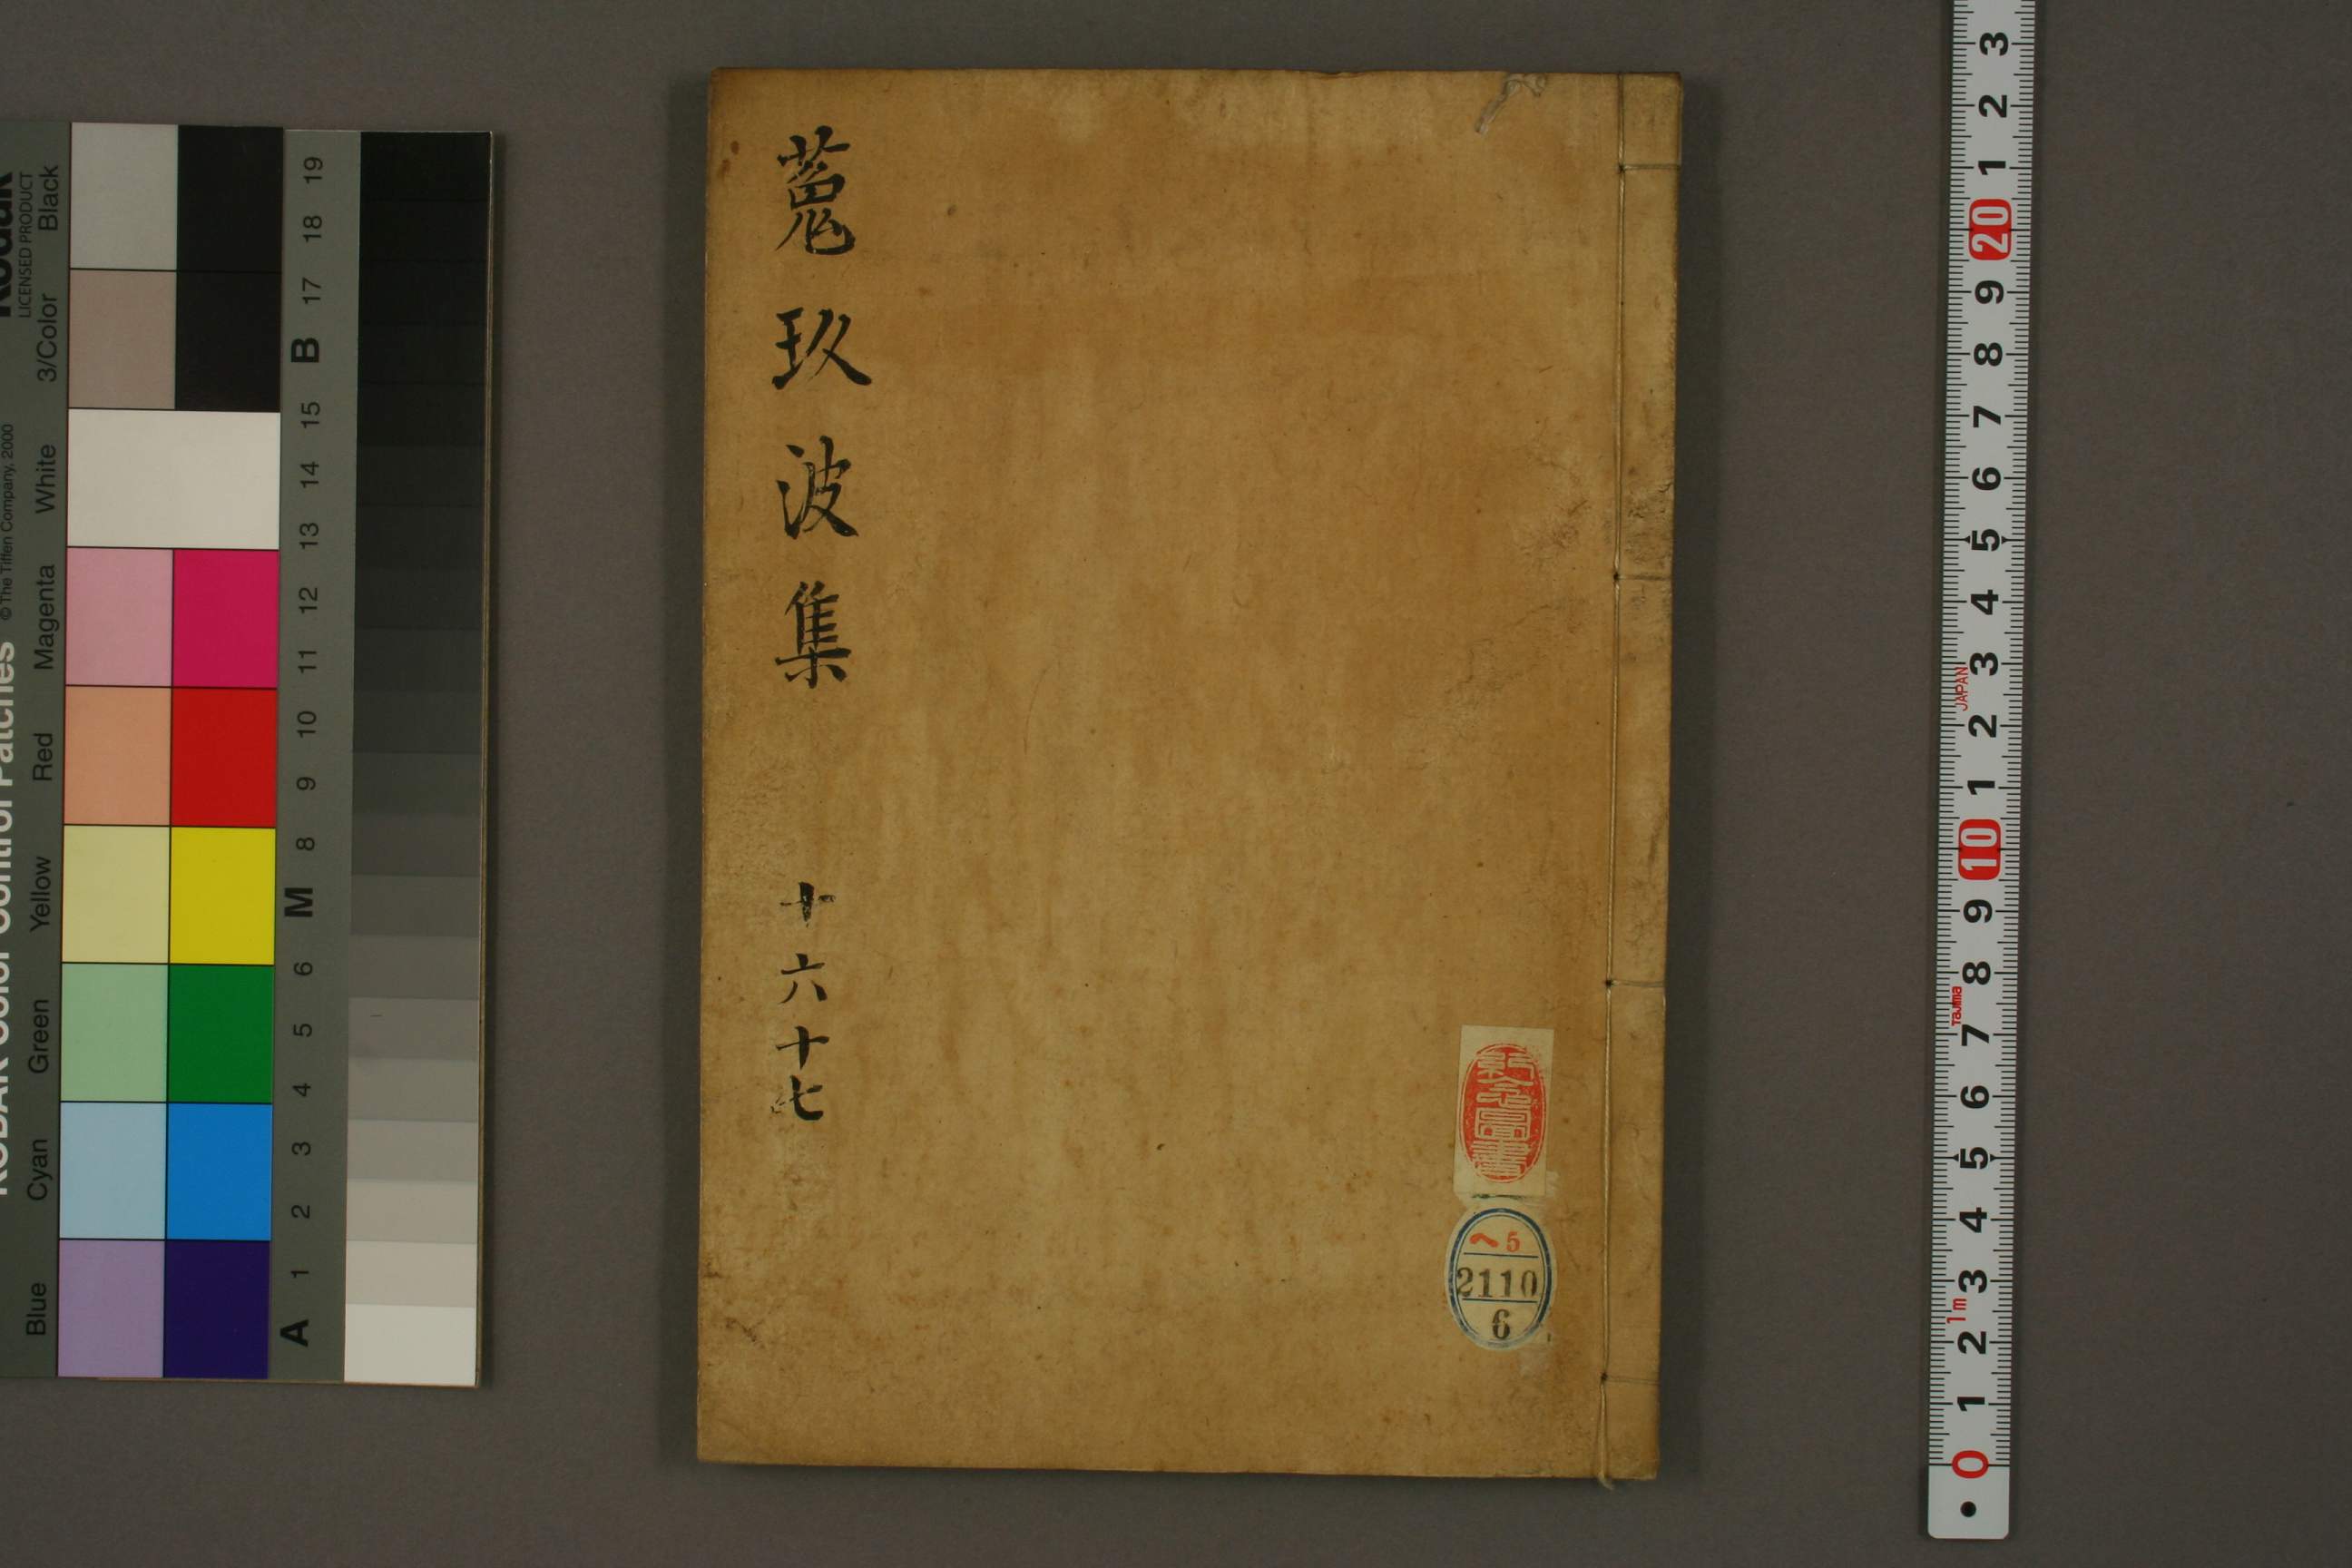 菟玖波集
十六十七
ヘ5
2110
6
Kodak
LICENSED PRODUCT
KODAK Color Control Patches
© The Tiffen Company, 2000
Blue Cyan Green Yellow Red Magenta White 3/Color Black
A 1 2 3 4 5 6 M 8 9 10 11 12 13 14 15 B 17 18 19
0 1 2 3 4 5 6 7 8 9 10 1 2 3 4 5 6 7 8 9 20 1 2 3
1m
Tajima
JAPAN